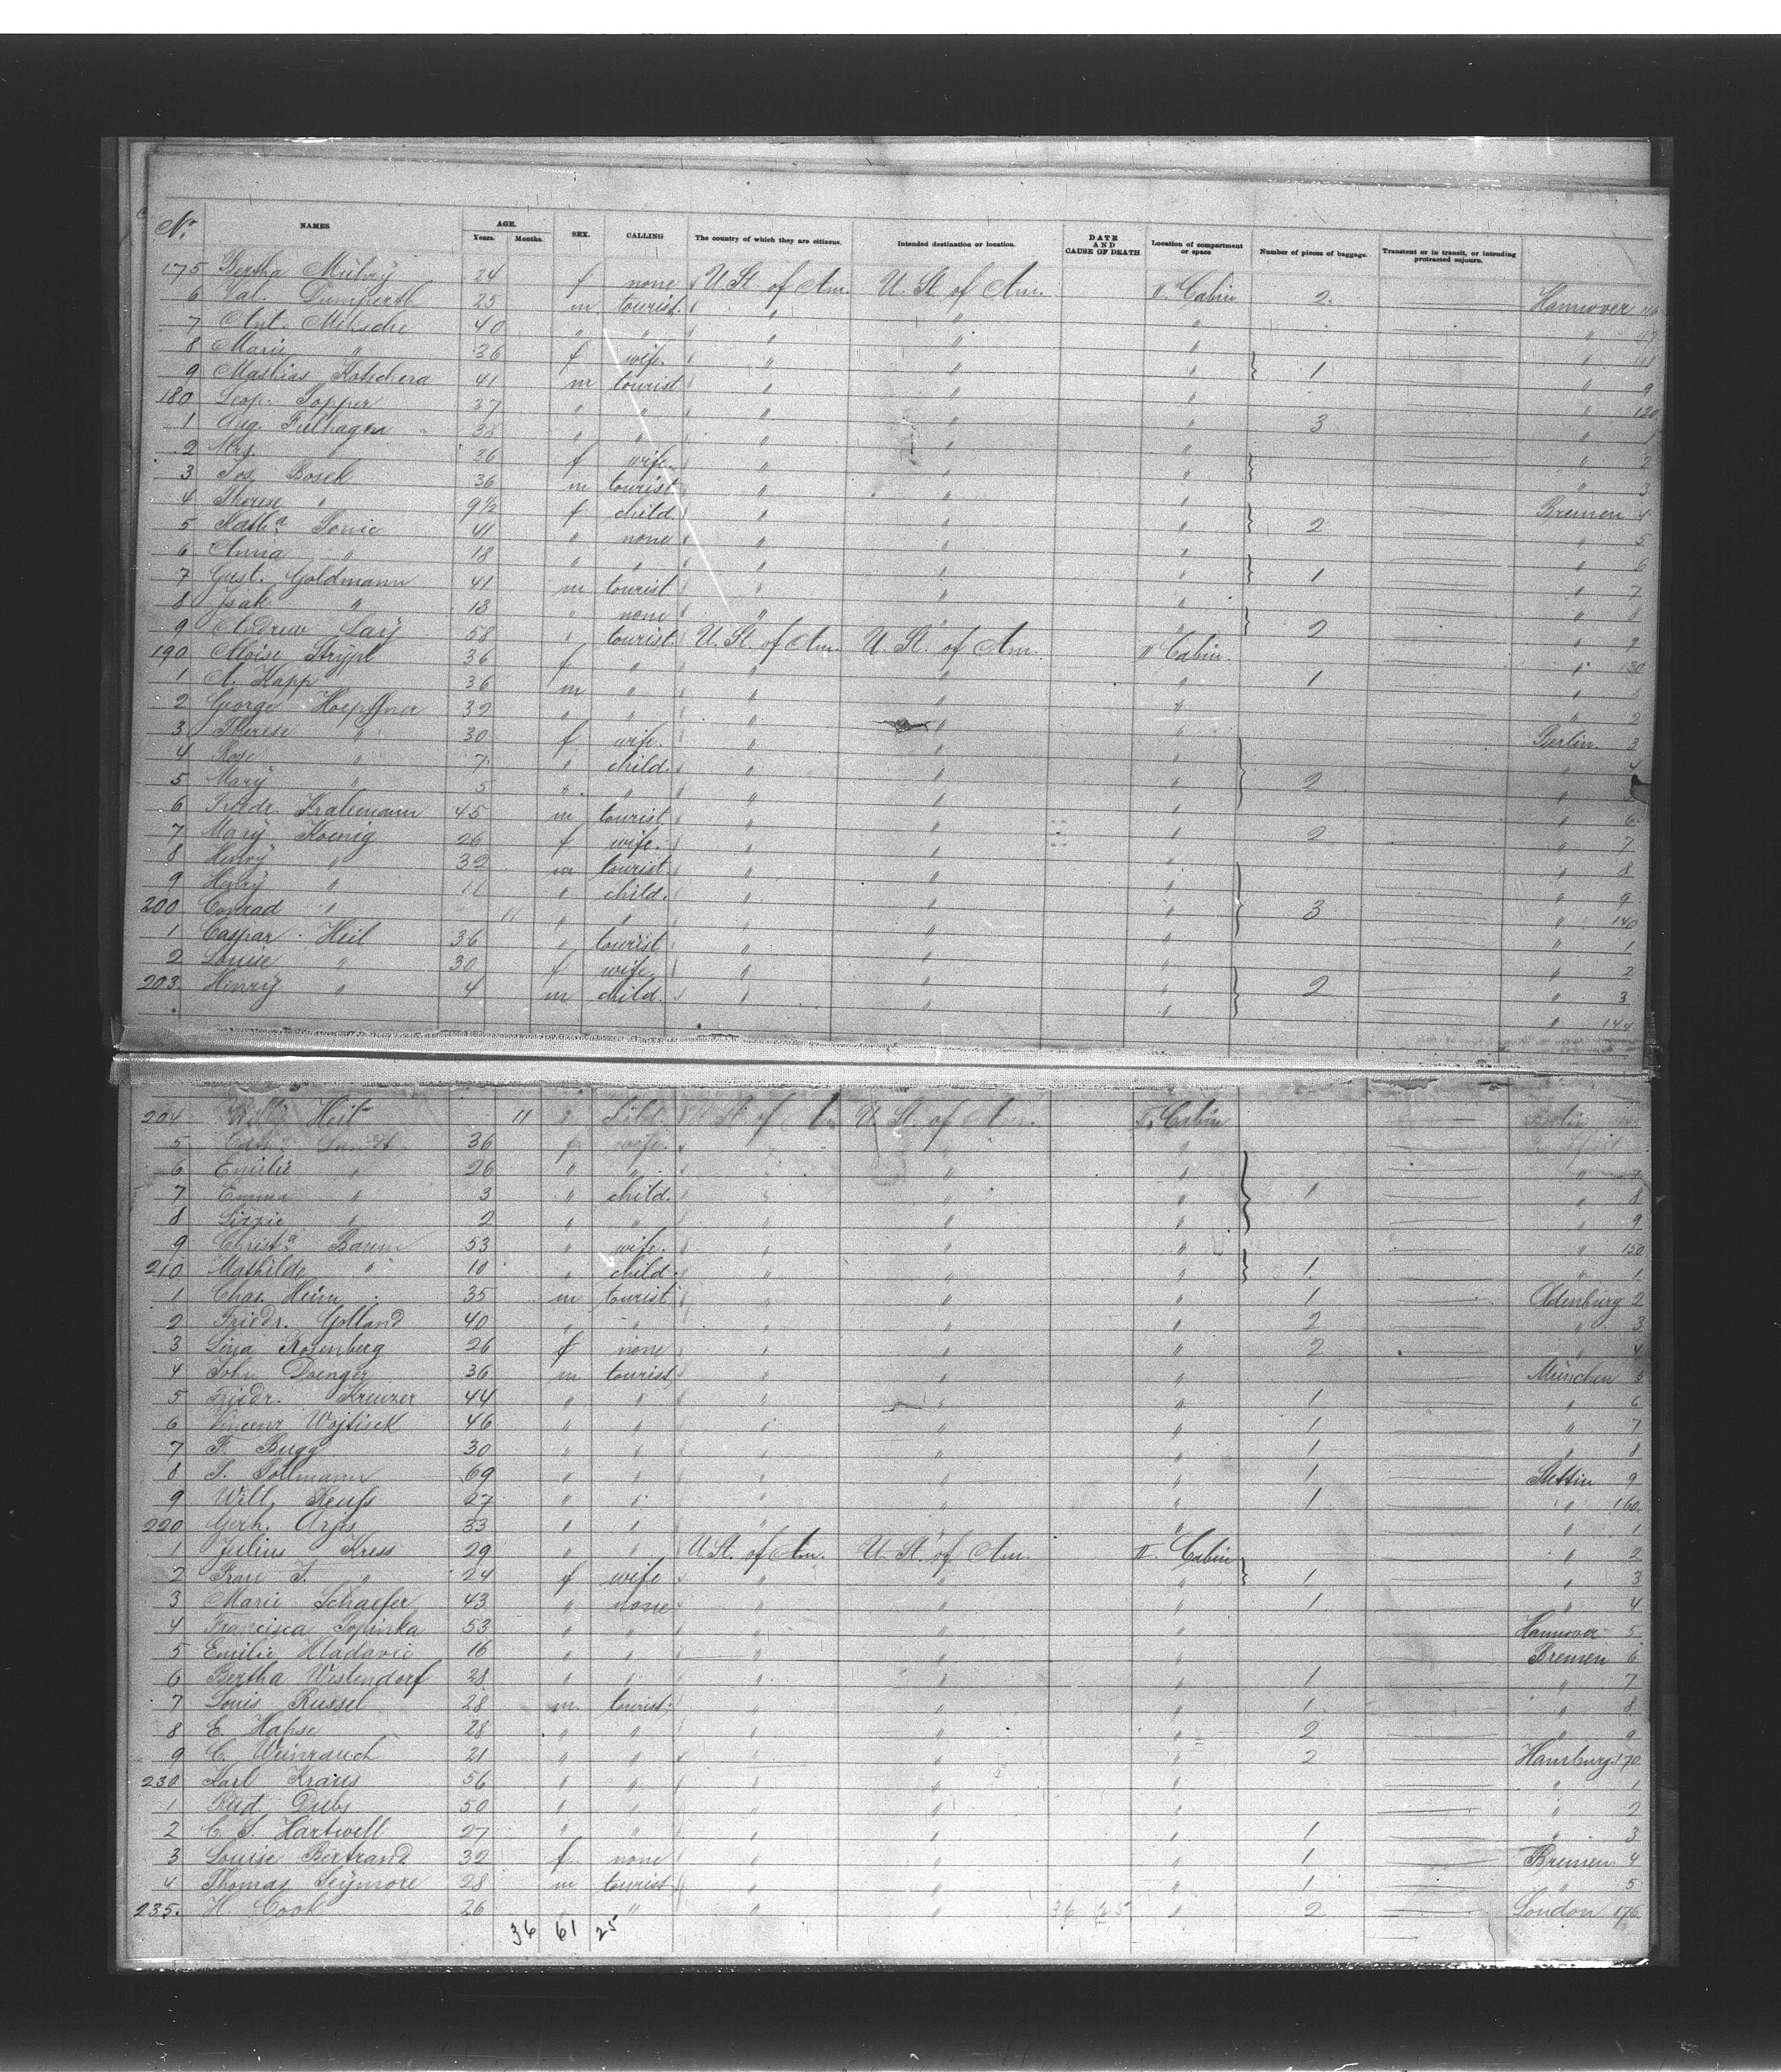 No. NAMES AGE. Years. Months. SEX. CALLING The country of which they are citizens. Intended destination or location. DATE AND CAUSE OF DEATH Location of compartment or space Number of pieces of baggage. Transient or in transit, or intending protracted sojourn.
175 Bertha 24 f none U. St. of Am. U. St. of Am. II. Cabin 2. Hannover
6 Val. 25 m tourist. " " "
7 Ant. 40 " " " " "
8 Marie " 36 f wife. " " " 1
9 41 m tourist " " " " 9
180 Leop. Popper 37 " " " " " 3 " 120
1 Aug. 38 " " " " " " 1
2 Mrs. 36 f wife. " " " " 2
3 Jos. Bosek 36 m tourist " " " " 3
4 Therese " 9½ f child. " " " 2 Bremen 4
5 Kath.a 41 " none " " " " 5
6 Anna " 18 " " " " " 1 " 6
7 Gust. Goldmann 41 m tourist " " " " 7
8 Isak " 13 " none " " " 2 " 8
9 Andrew 58 " tourist. U. St. of Am. U. St. of Am. II Cabin. " 9
190 36 f " " " " 1 " 130
1 A. Kapp 36 m " " " " " 1
2 George Hoepffner 32 " " " " " " 2
3 Therese " 30 f wife. " " " Berlin. 3
4 Rose " 7 " child. " " " 2 " 4
5 Mary " 5 " " " " "
6 Friedr. 45 m tourist " " " 2 " 6
7 Mary Koenig 26 f wife. " " " " 7
8 Henry " 32 m tourist " " " " 8
9 Henry " 11 " child. " " " 3 " 9
200 Conrad " 11 " " " " " " 140
1 Caspar Heil 36 " tourist " " " " 1
2 Louise " 30 f wife. " " " 2 " 2
203. Henry " 4 m child. " " " " 3
" 144
204 Willy Heil 11 " child. U. St. of Am. U. St. of Am. II. Cabin Berlin
5 36 f wife. " " "
6 Emilie " 26 " " " " " " 7
7 Emma " 3 " child. " " " 1 " 8
8 Lizzie " 2 " " " " " " 9
9 Christ.a Baum 53 " wife. " " " " 150
210 Mathilde " 10 " child. " " " 1. " 1
1 Chas. Heim 35 m tourist " " " 1 Oldenburg 2
2 Friedr. Golland 40 " " " " " 2 " 3
3 Lina Rosenberg 26 f none " " " 2 " 4
4 John Doenger 36 m tourist " " " München 5
5 Friedr. Kreuzer 44 " " " " " 1 " 6
6 Vincenz Wojtisek 46 " " " " " 1 " 7
7 F. Bugg 30 " " " " " 1 " 8
8 P. Pollmann 69 " " " " " 1 Stettin 9
9 Will. Reufs 27 " " " " " 1 " 160.
220 Gerh. 33 " " " " " " 1
1 Julius Kress 29 " " U. St. of Am. U. St. of Am. II. Cabin " 2
2 Frau J. " 24 f wife " " " 1 " 3
3 Marie Schaefer 43 " none " " " 1. " 4
4 Francisca 53 " " " " " Hannover 5
5 Emilie Hladavic 16 " " " " " Bremen 6
6 Bertha Westendorf 28 " " " " " 1 " 7
7 Louis Russel 28 m. tourist. " " " 1. " 8
8 E. Hapse 28 " " " " " 2 " 9
9 C. Weinrauch 21 " " " " " 2 Hamburg. 170
230 Karl Kraus 56 " " " " " " 1
1 Rud. Dubs 50 " " " " " " 2
2 C. S. Hartwell 27 " " " " " 1 " 3
3 Louise Bertrand 32 f none " " " 1 Bremen 4
4 Thomas Seymore 28 m tourist " " " 1 " 5
235. H. Cook 26 " " " " 36 25 " 2 London 176
36 61 25